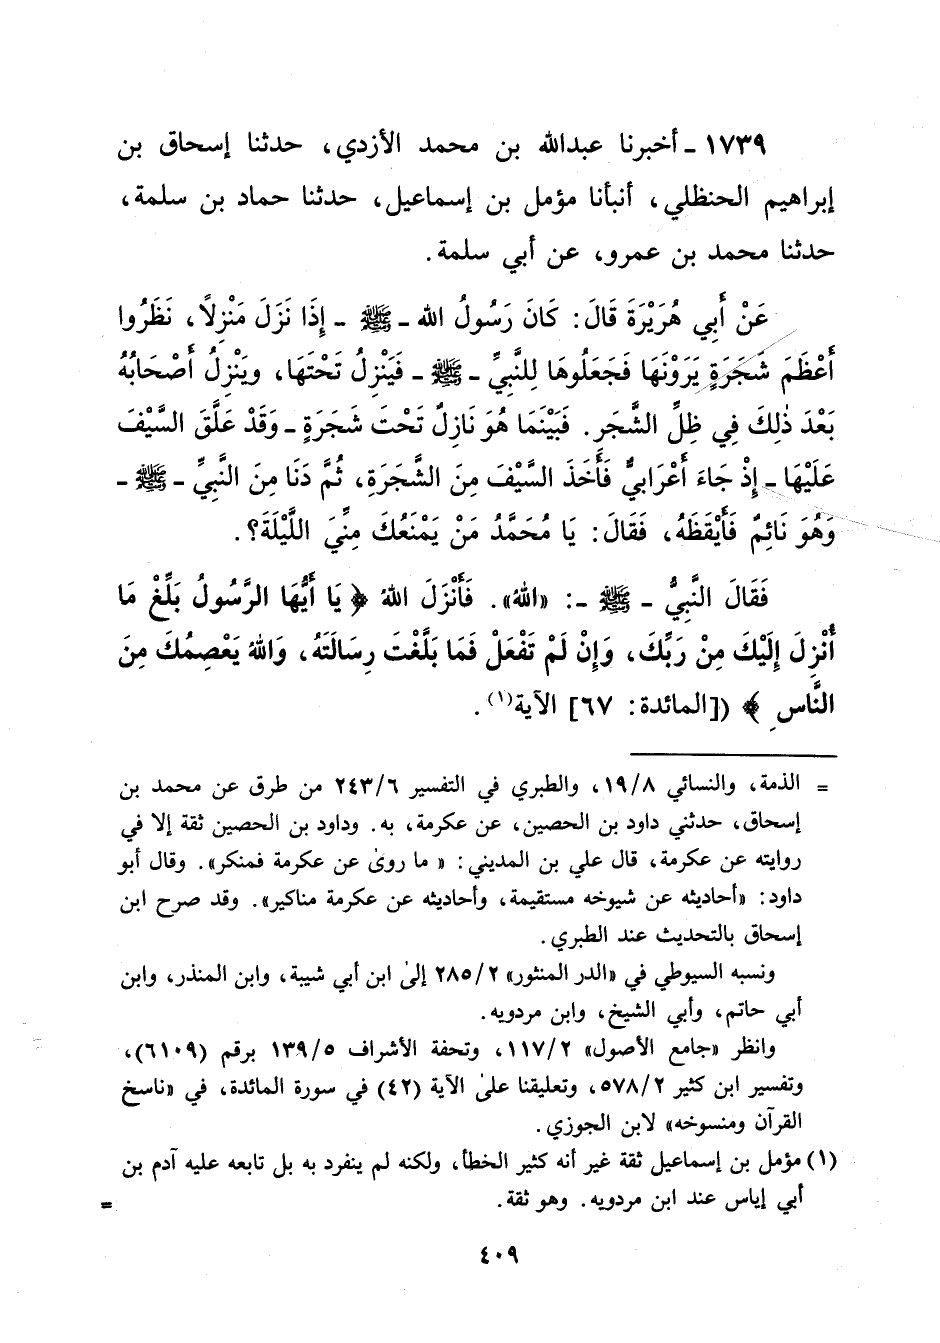 ١٧٣٩ - أخبرنا عبدالله بن محمد الأزدي، حدثنا إسحاق بن
إبراهيم الحنظلي، أنبأنا مؤمل بن إسماعيل، حدثنا حماد بن سلمة،
حدثنا محمد بن عمرو، عن أبي سلمة.
عَنْ أَبِي هُرَيْرَةَ قَالَ: كَانَ رَسُولُ الله - ﷺ - إِذَا نَزَلَ مَنْزِلًا، نَظَرُوا
أَعْظَمَ شَجَرَةٍ يَرَوْنَهَا فَجَعَلُوهَا لِلنَّبِيِّ - ﷺ - فَيَنْزِلُ تَحْتَهَا، وَيَنْزِلُ أَصْحَابُهُ
بَعْدَ ذٰلِكَ فِي ظِلِّ الشَّجَرِ. فَبَيْنَمَا هُوَ نَازِلٌ تَحْتَ شَجَرَةٍ - وَقَدْ عَلَّقَ السَّيْفَ
عَلَيْهَا - إِذْ جَاءَ أَعْرَابِيٌّ فَأَخَذَ السَّيْفَ مِنَ الشَّجَرَةِ، ثُمَّ دَنَا مِنَ النَّبِيِّ - ﷺ -
وَهُوَ نَائِمٌ فَأَيْقَظَهُ، فَقَالَ: يَا مُحَمَّدُ مَنْ يَمْنَعُكَ مِنِّيَ اللَّيْلَةَ؟.
فَقَالَ النَّبِيُّ - ﷺ -: «اللهُ». فَأَنْزَلَ اللهُ ﴿ يَا أَيُّهَا الرَّسُولُ بَلِّغْ مَا
أُنْزِلَ إِلَيْكَ مِنْ رَبِّكَ، وَإِنْ لَمْ تَفْعَلْ فَمَا بَلَّغْتَ رِسَالَتَهُ، وَاللهُ يَعْصِمُكَ مِنَ
النَّاسِ ﴾ ([المائدة: ٦٧] الآية(١).
= الذمة، والنسائي ١٩/٨، والطبري في التفسير ٢٤٣/٦ من طرق عن محمد بن
إسحاق، حدثني داود بن الحصين، عن عكرمة، به. وداود بن الحصين ثقة إلا في
روايته عن عكرمة، قال علي بن المديني: « ما روىٰ عن عكرمة فمنكر». وقال أبو
داود: «أحاديثه عن شيوخه مستقيمة، وأحاديثه عن عكرمة مناكير». وقد صرح ابن
إسحاق بالتحديث عند الطبري.
ونسبه السيوطي في «الدر المنثور» ٢٨٥/٢ إلىٰ ابن أبي شيبة، وابن المنذر، وابن
أبي حاتم، وأبي الشيخ، وابن مردويه.
وانظر «جامع الأصول» ١١٧/٢، وتحفة الأشراف ١٣٩/٥ برقم (٦١٠٩)،
وتفسير ابن كثير ٥٧٨/٢، وتعليقنا علىٰ الآية (٤٢) في سورة المائدة، في «ناسخ
القرآن ومنسوخه» لابن الجوزي.
(١) مؤمل بن إسماعيل ثقة غير أنه كثير الخطأ، ولكنه لم ينفرد به بل تابعه عليه آدم بن
أبي إياس عند ابن مردويه. وهو ثقة. =
٤٠٩